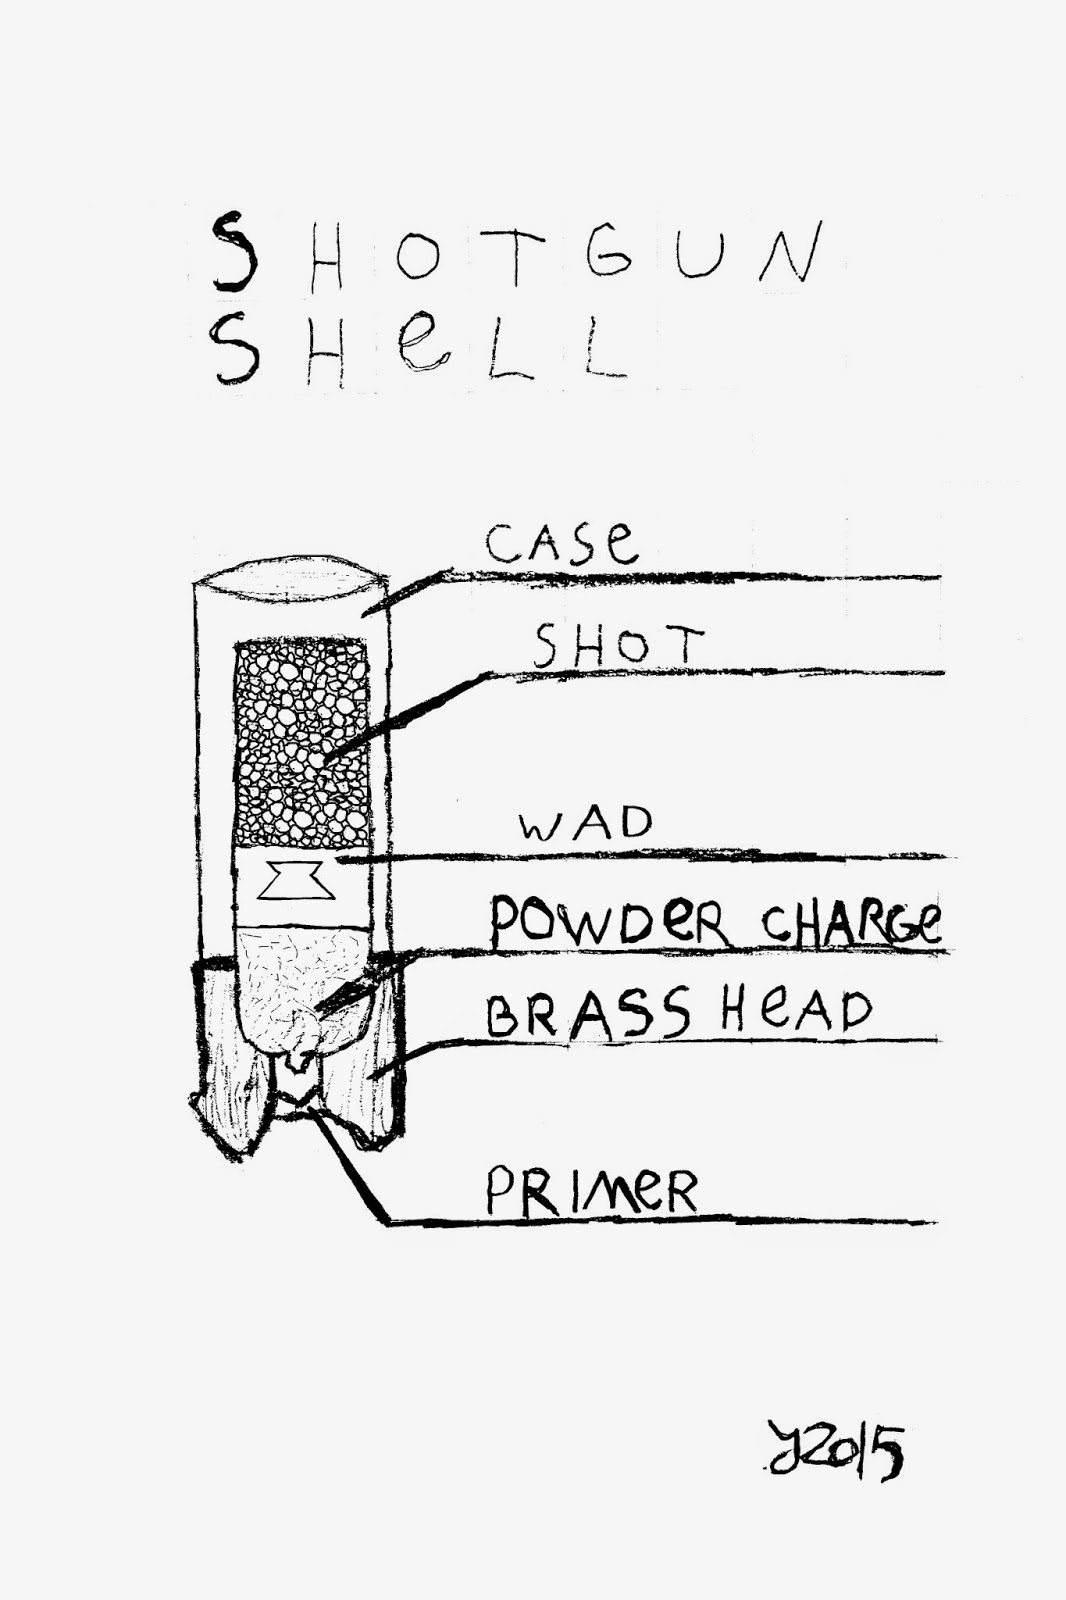 SHOTGUN
SHeLL
CASe
SHOT
WAD
POWDeR CHARGe
BRASS HeAD
PRIMeR
y2015